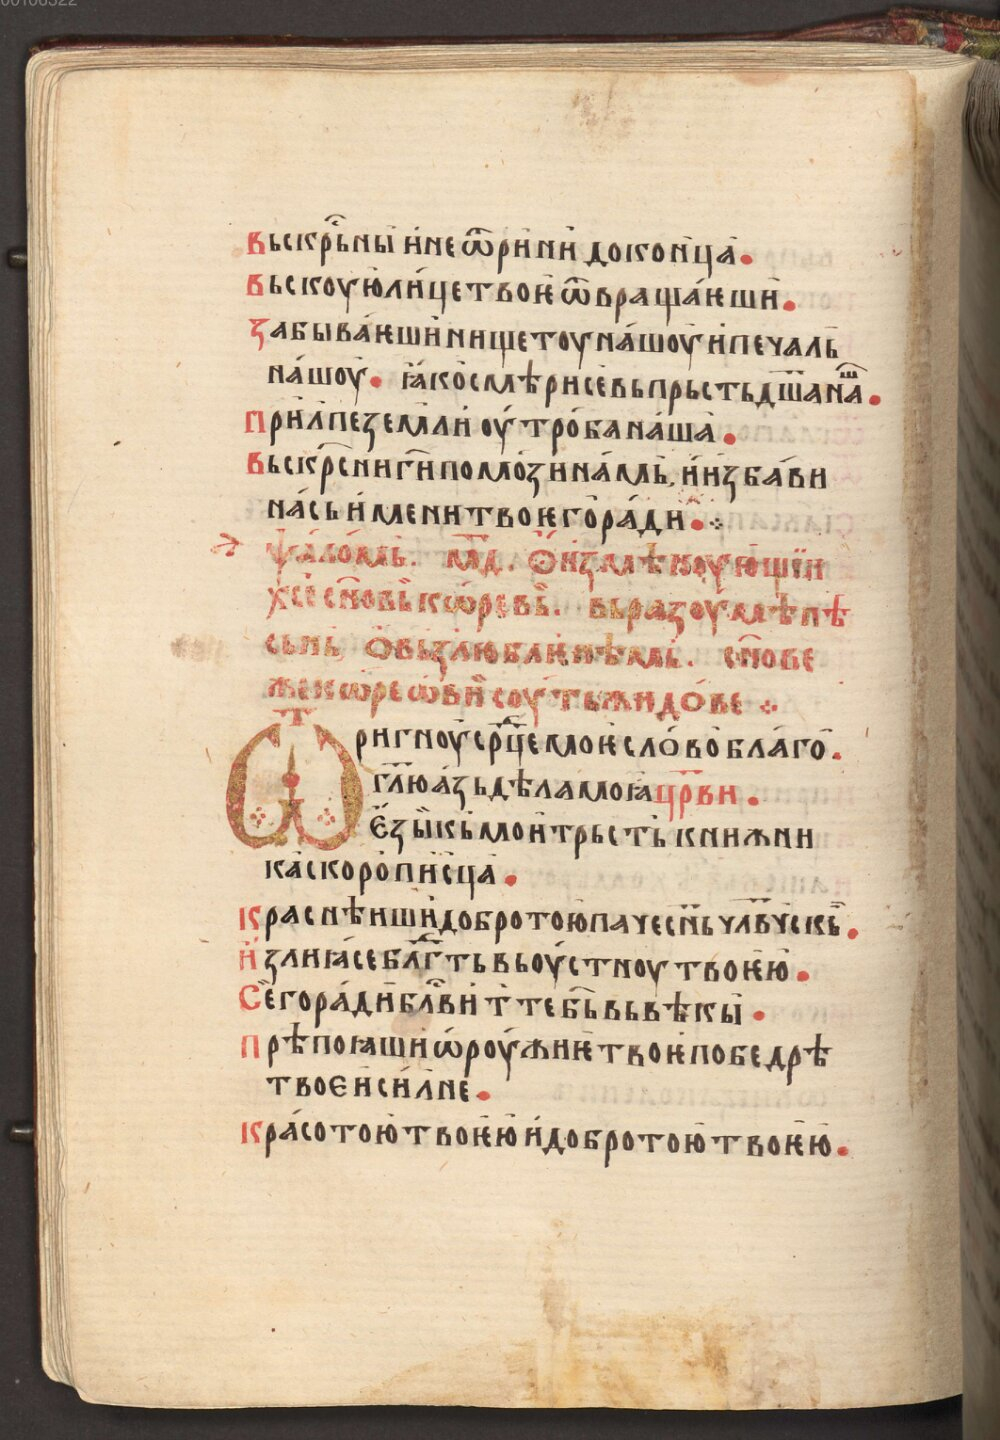 00106322
вьскрⷭ҇ны и҆не ѿрини до конц҃а.
вьскоую ли́це твоѥ ѿвраща́ѥши.
забыва́ѥши нищетоу на́шоу и҆ печаль
на́шоу. ꙗ҆ко смѣри се вь прьсть дш҃а наⷲ҇а.
прил́пе земли оу҆тро́ба на́ша.
вьскрⷭ҇ни ги҃ помоꙁи на́мь, и҆ иꙁба́ви
на́сь имени твоѥго ра́ди.
ѱало́мь. мд҃. Ѡ҆ иꙁмѣноую҆щїи
хсе сн҃овь кѡ҆ревь. вь раꙁоумѣ пѣ
сьнь ѡ҆ вьꙁлюблѥнѣмь. сн҃ове
же кѡ҆реѡ҆ви соуть жидо́ве
Ѿригноу срⷣце моѥ сло́во бла́го.
гл҃ю аꙁь дѣла моꙗ црв҃и.
Є҆ꙁыкь мои трьсть книжни
ка скоропи́сца.
краснѣиши добротою паче сн҃ь члв҃чскь.
и҆ꙁлиꙗ се блгⷣть вь оу҆стноу твоѥю.
Сего ра́ди блⷭ҇ви т те бь вь вѣкы.
прѣпоꙗши ѡ҆роу́жиѥ твоѥ по бедрѣ
твоєи си́лне.
кра́сотою твоѥю и҆ добротою твоѥю.